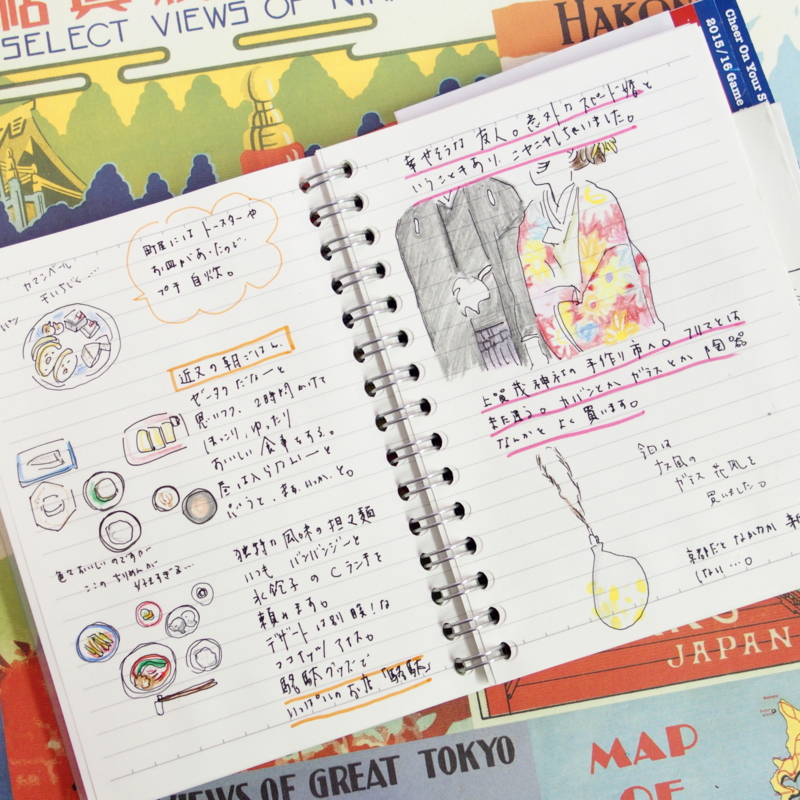 SELECT VIEWS OF NI
HAKON
Cheer On Your S
2015/16 Game
町屋には トースターや
お皿があったので
プチ自炊。
カマンベール
干いちじく…
パン
近又の朝ごはん
ゼータクだなーと
思いつつ、2時間かけて
ほっこり、ゆったり
おいしい食事をする。
昼は入らないーと
思うと、まぁいっか、と。
全ておいしいのですが
ここのちりめんが
好きすぎる…
独特な風味の担々麺
いつも バンバンジーと
水餃子の Cランチを
頼みます。
デザートは別腹!な
ココナッツアイス。
駱駝グッズで
いっぱいのお店「駱駝」
幸せそうな 友人。意外な スピード婚と
いうこともあり、ニヤニヤしちゃいました。
上賀茂神社の 手作り市へ。
また違う。カバンとか ガラスとか 陶器
なんかを よく買います。
今日は
ガラス 花瓶を
買いました。
京都だと なかなか
しない…。
JAPAN
VIEWS OF GREAT TOKYO
MAP
OF